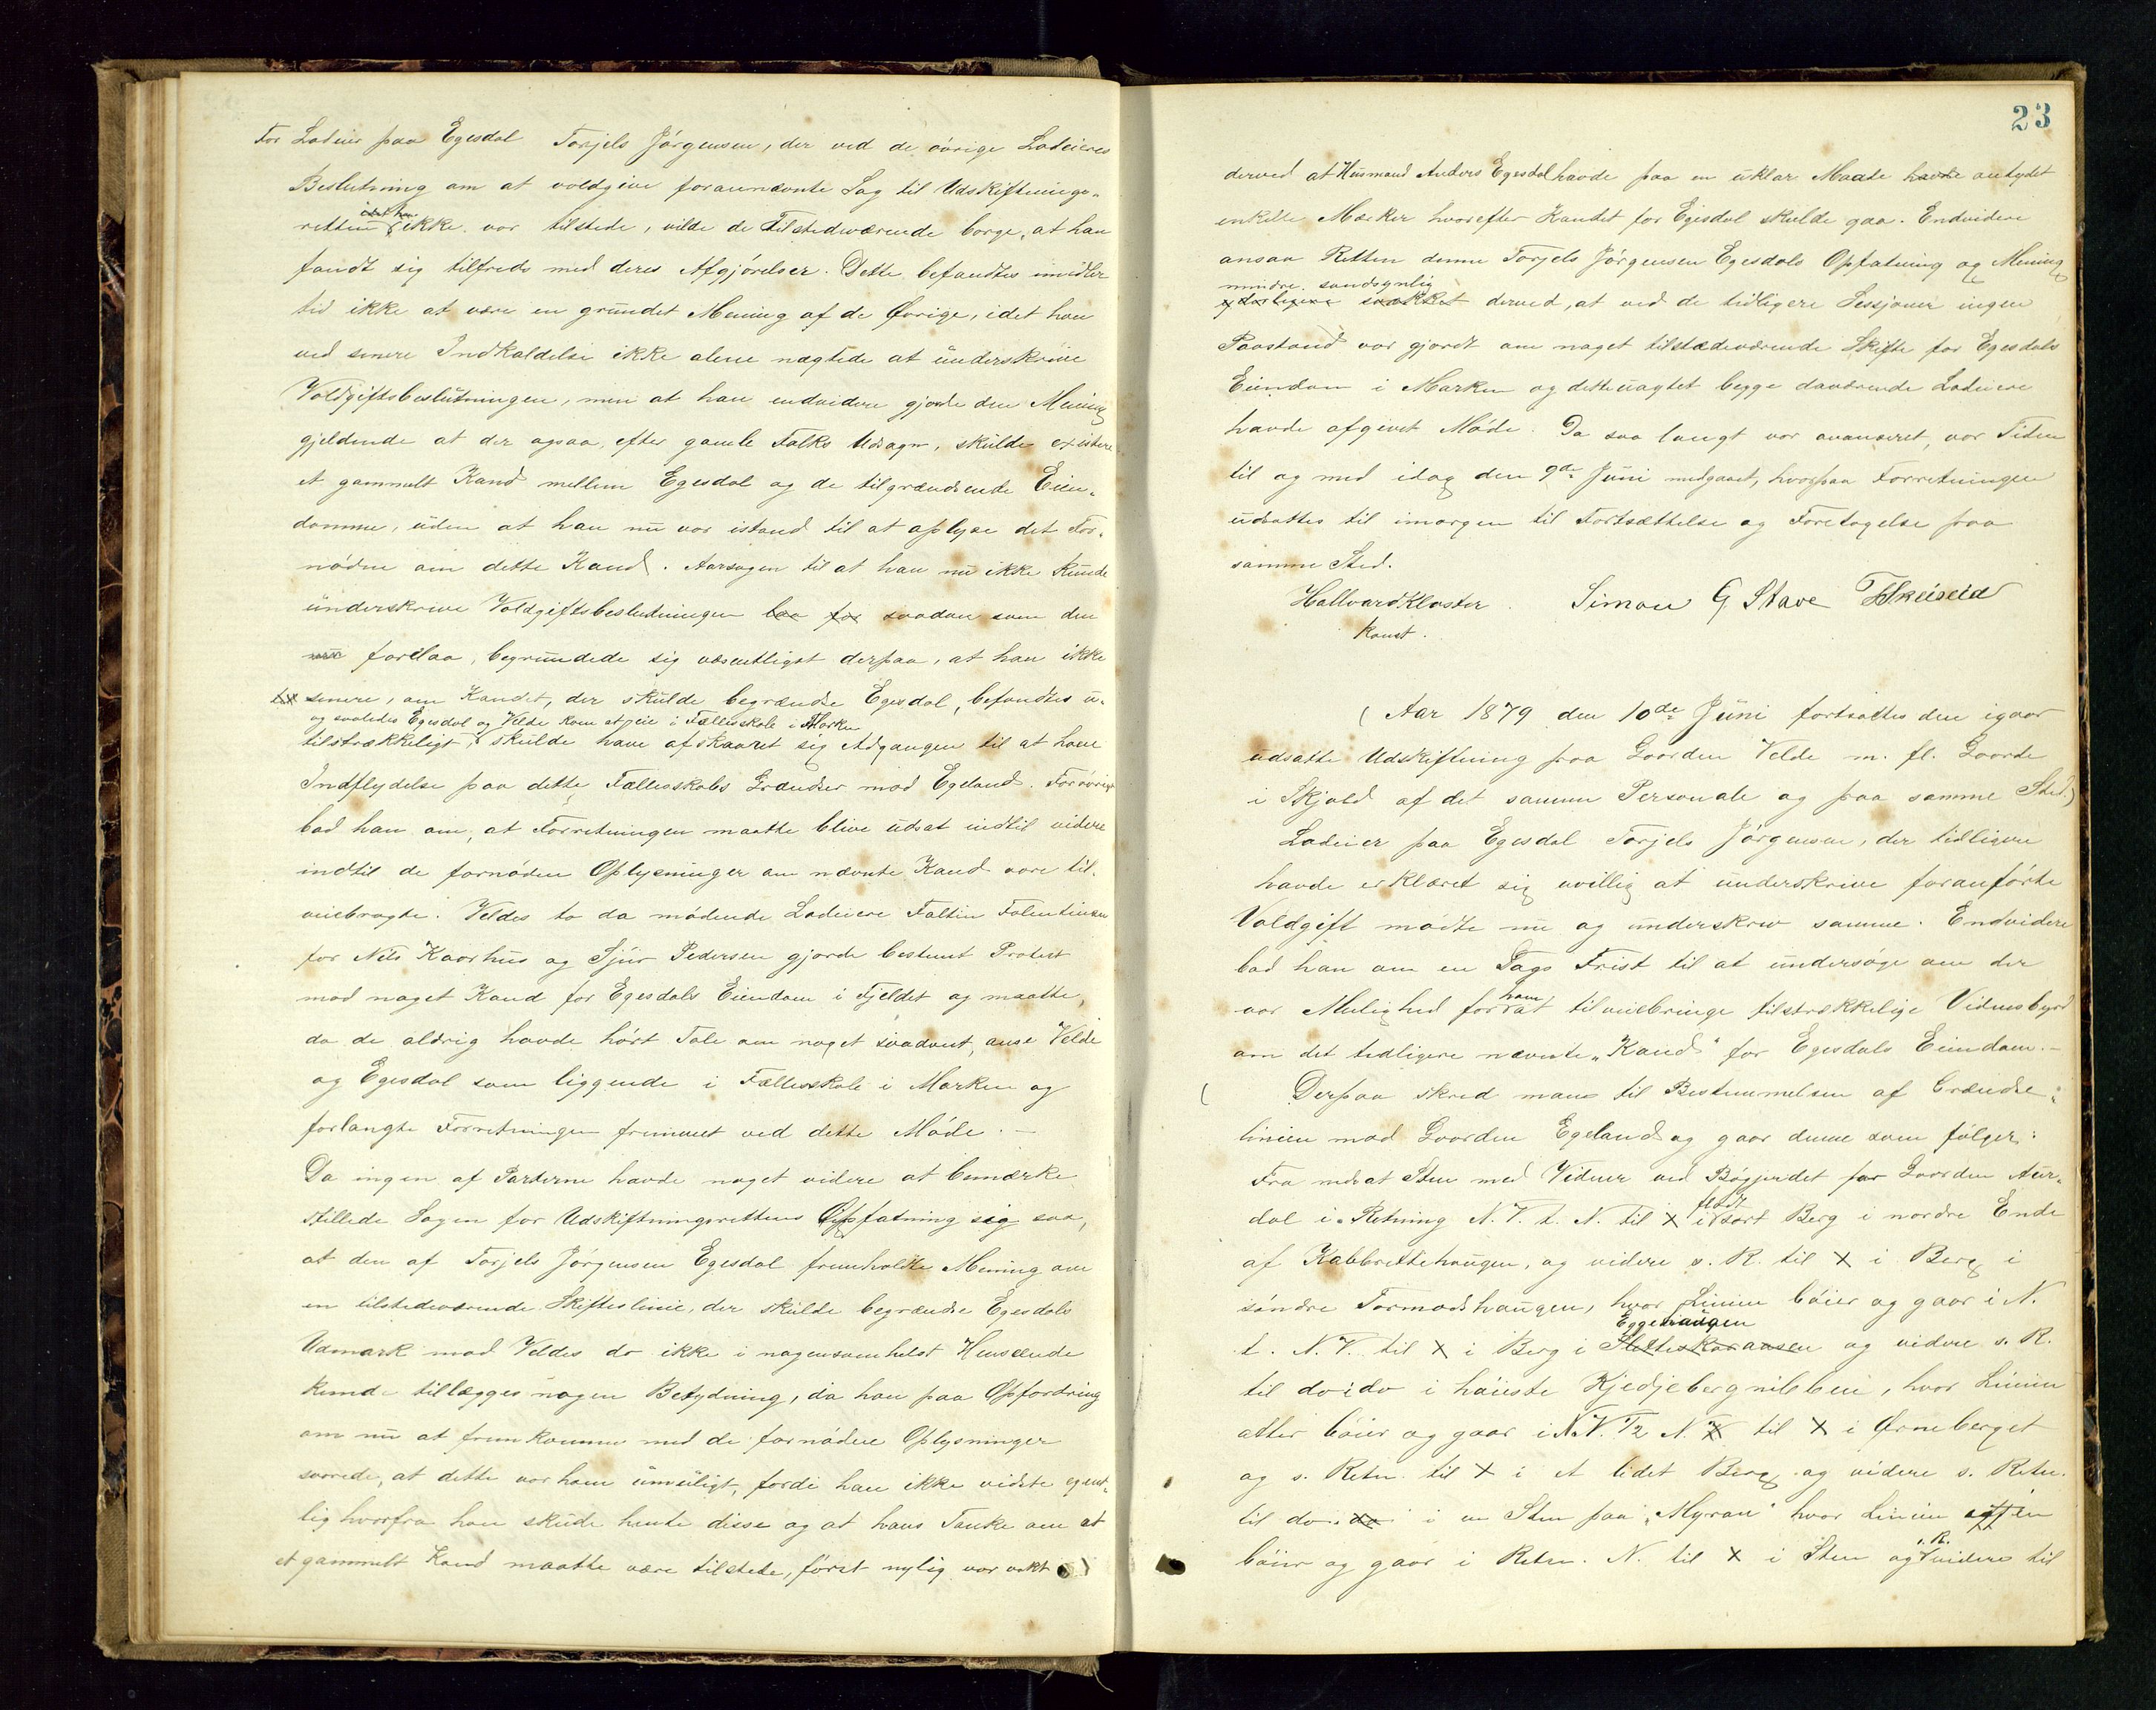 For Lodeier paa Egesdal Torjels Jörgensen, der ved de övrige Lodeieres
Beslutning om at voldgive forannævnte Sag til Udskiftnings-
retten ikke var tilstede, vilde de Tilstedeværende borge, at han
fandt sig tilfreds med deres Afgjörelser. Dette befandtes imidler
tid ikke at være en grundet Mening af de Øvrige, idet han
ved senere Indkaldelse ikke alene nægtede at underskrive
Voldgiftsbeslutningen, men at han endvidere gjorde den Mening
gjeldende at der ogsaa, efter gamle Folks Udsagn, skulde existere
et gammelt Kand mellem Egesdal og de tilgrændsende Eien-
domme, uden at han nu var istand til at oplyse det For-
nödne om dette Kand. Aarsagen til at han nu ikke kunde
underskrive Voldgiftsbeslutningen laa for saadan som den
nu forelaa, begrundede sig væsentligst derpaa, at han ikke
senere, om Kandet, der skulde begrændse Egesdal, befandtes u-
og saaledes Egesdal og Velde kom at eie i Fællesskab i Marken
tilstrækkeligt, skulde have afskaaret sig Adgangen til at have
Indflydelse paa dette Fællesskabs Grændser mod Egeland. Forövrigt
bad han om, at Forretningen maatte blive udsat indtil videre
indtil de fornödne Oplysninger om nævnte Kand vare til-
veiebragte. Veldes to da mödende Lodeiere Faltin Falentinsen
for Nils Kaarhus og Sjur Pedersen gjorde bestemt Protest
mod noget Kand for Egesdals Eiendom i Fjeldet og maatte,
da de aldrig havde hört Tale om noget saadant, anse Velde
og Egesdal som liggende i Fællesskab i Marken og
forlangte Forretningen fremmet ved dette Möde. —
Da ingen af Parterne havde noget videre at bemærke
stillede Sagen for Udskiftningsrettens Opfatning sig saa,
at den af Torjels Jörgensen Egesdal fremholdte Mening om
en tilstedeværende Skifteslinie, der skulde begrændse Egesdals
Udmark mod Veldes do ikke i nogensomhelst Henseende
kunde tillægges nogen Betydning, da han paa Opfordring
om nu at fremkomme med de fornödne Oplysninger
svarede, at dette var ham umuligt, fordi han ikke vidste egent-
lig hvorfra han skulde hente disse og at hans Tanke om at
et gammelt Kand maatte være tilstede, först nylig var vakt
23
derved at Husmand Anders Egesdal havde paa en uklar Maade havde antydet
enkelte Mærker hvorefter Kandet for Egesdal skulde gaa. Endvidere
ansaa Retten denne Torjels Jörgensen Egesdals Opfatning og Mening
mindre sandsynlig
yderligere svækket derved, at ved de tidligere Sessjoner ingen
Paastand var gjordt om noget tilstedeværende Skifte for Egesdals
Eiendom i Marken og dette uagtet begge daværende Lodeiere
havde afgivet Möde. Da saa langt var avanseret, var Tiden
til og med idag den 9de Juni medgaaet, hvorpaa Forretningen
udsattes til imorgen til Fortsættelse og Foretagelse paa
samme Sted.
Hallvard Kloster Simon G. Stave T Skeiseid
konst.
(Aar 1879 den 10de Juni fortsattes den igaar
udsatte Udskiftning paa Gaarden Velde m. fl. Gaarde
i Skjold af det samme Personale og paa samme Sted.)
Lodeier paa Egesdal Torjels Jörgensen, der tidligere
havde erklæret sig uvillig at underskrive foranförte
Voldgift mödte nu og underskrev samme. Endvidere
bad han om en Dags Frist til at undersöge om der
var Mulighed for ham at tilveiebringe tilstrækkelige Vidnesbyrd
om det tidligere nævnte „Kand“ for Egesdals Eiendom. —
( Derpaa skred man til Bestemmelsen af Grændse-
linien mod Gaarden Egeland og gaar denne som fölger:
Fra nedsat Sten med Vidner ved Bögjerdet for Gaarden Aur-
dal i Retning N. V. t. N. til X i flad sort Berg i nordre Ende
af Kabbrettehaugen, og videre s. R. til X i Berg i
söndre Tormodshaugen, hvor Linien böier og gaar i N.
Eggehaugen
t. N. V. til X i Berg i og videre s. R.
til do i do i höieste Kjedjebergnibben, hvor Linien
atter böier og gaar i N.V. 1/2 N. til X i Ørneberget
og s. Retn. til X i et lidet Berg og videre s. Retn.
til do i do i en Sten paa „Myran“ hvor Linien
böier og gaar i Retn. N. til X i Sten og s. R. videre til